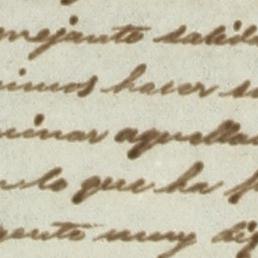 mejante salida
nimos hacer su
minar aquellas
n lo que ha p
gente muy dif